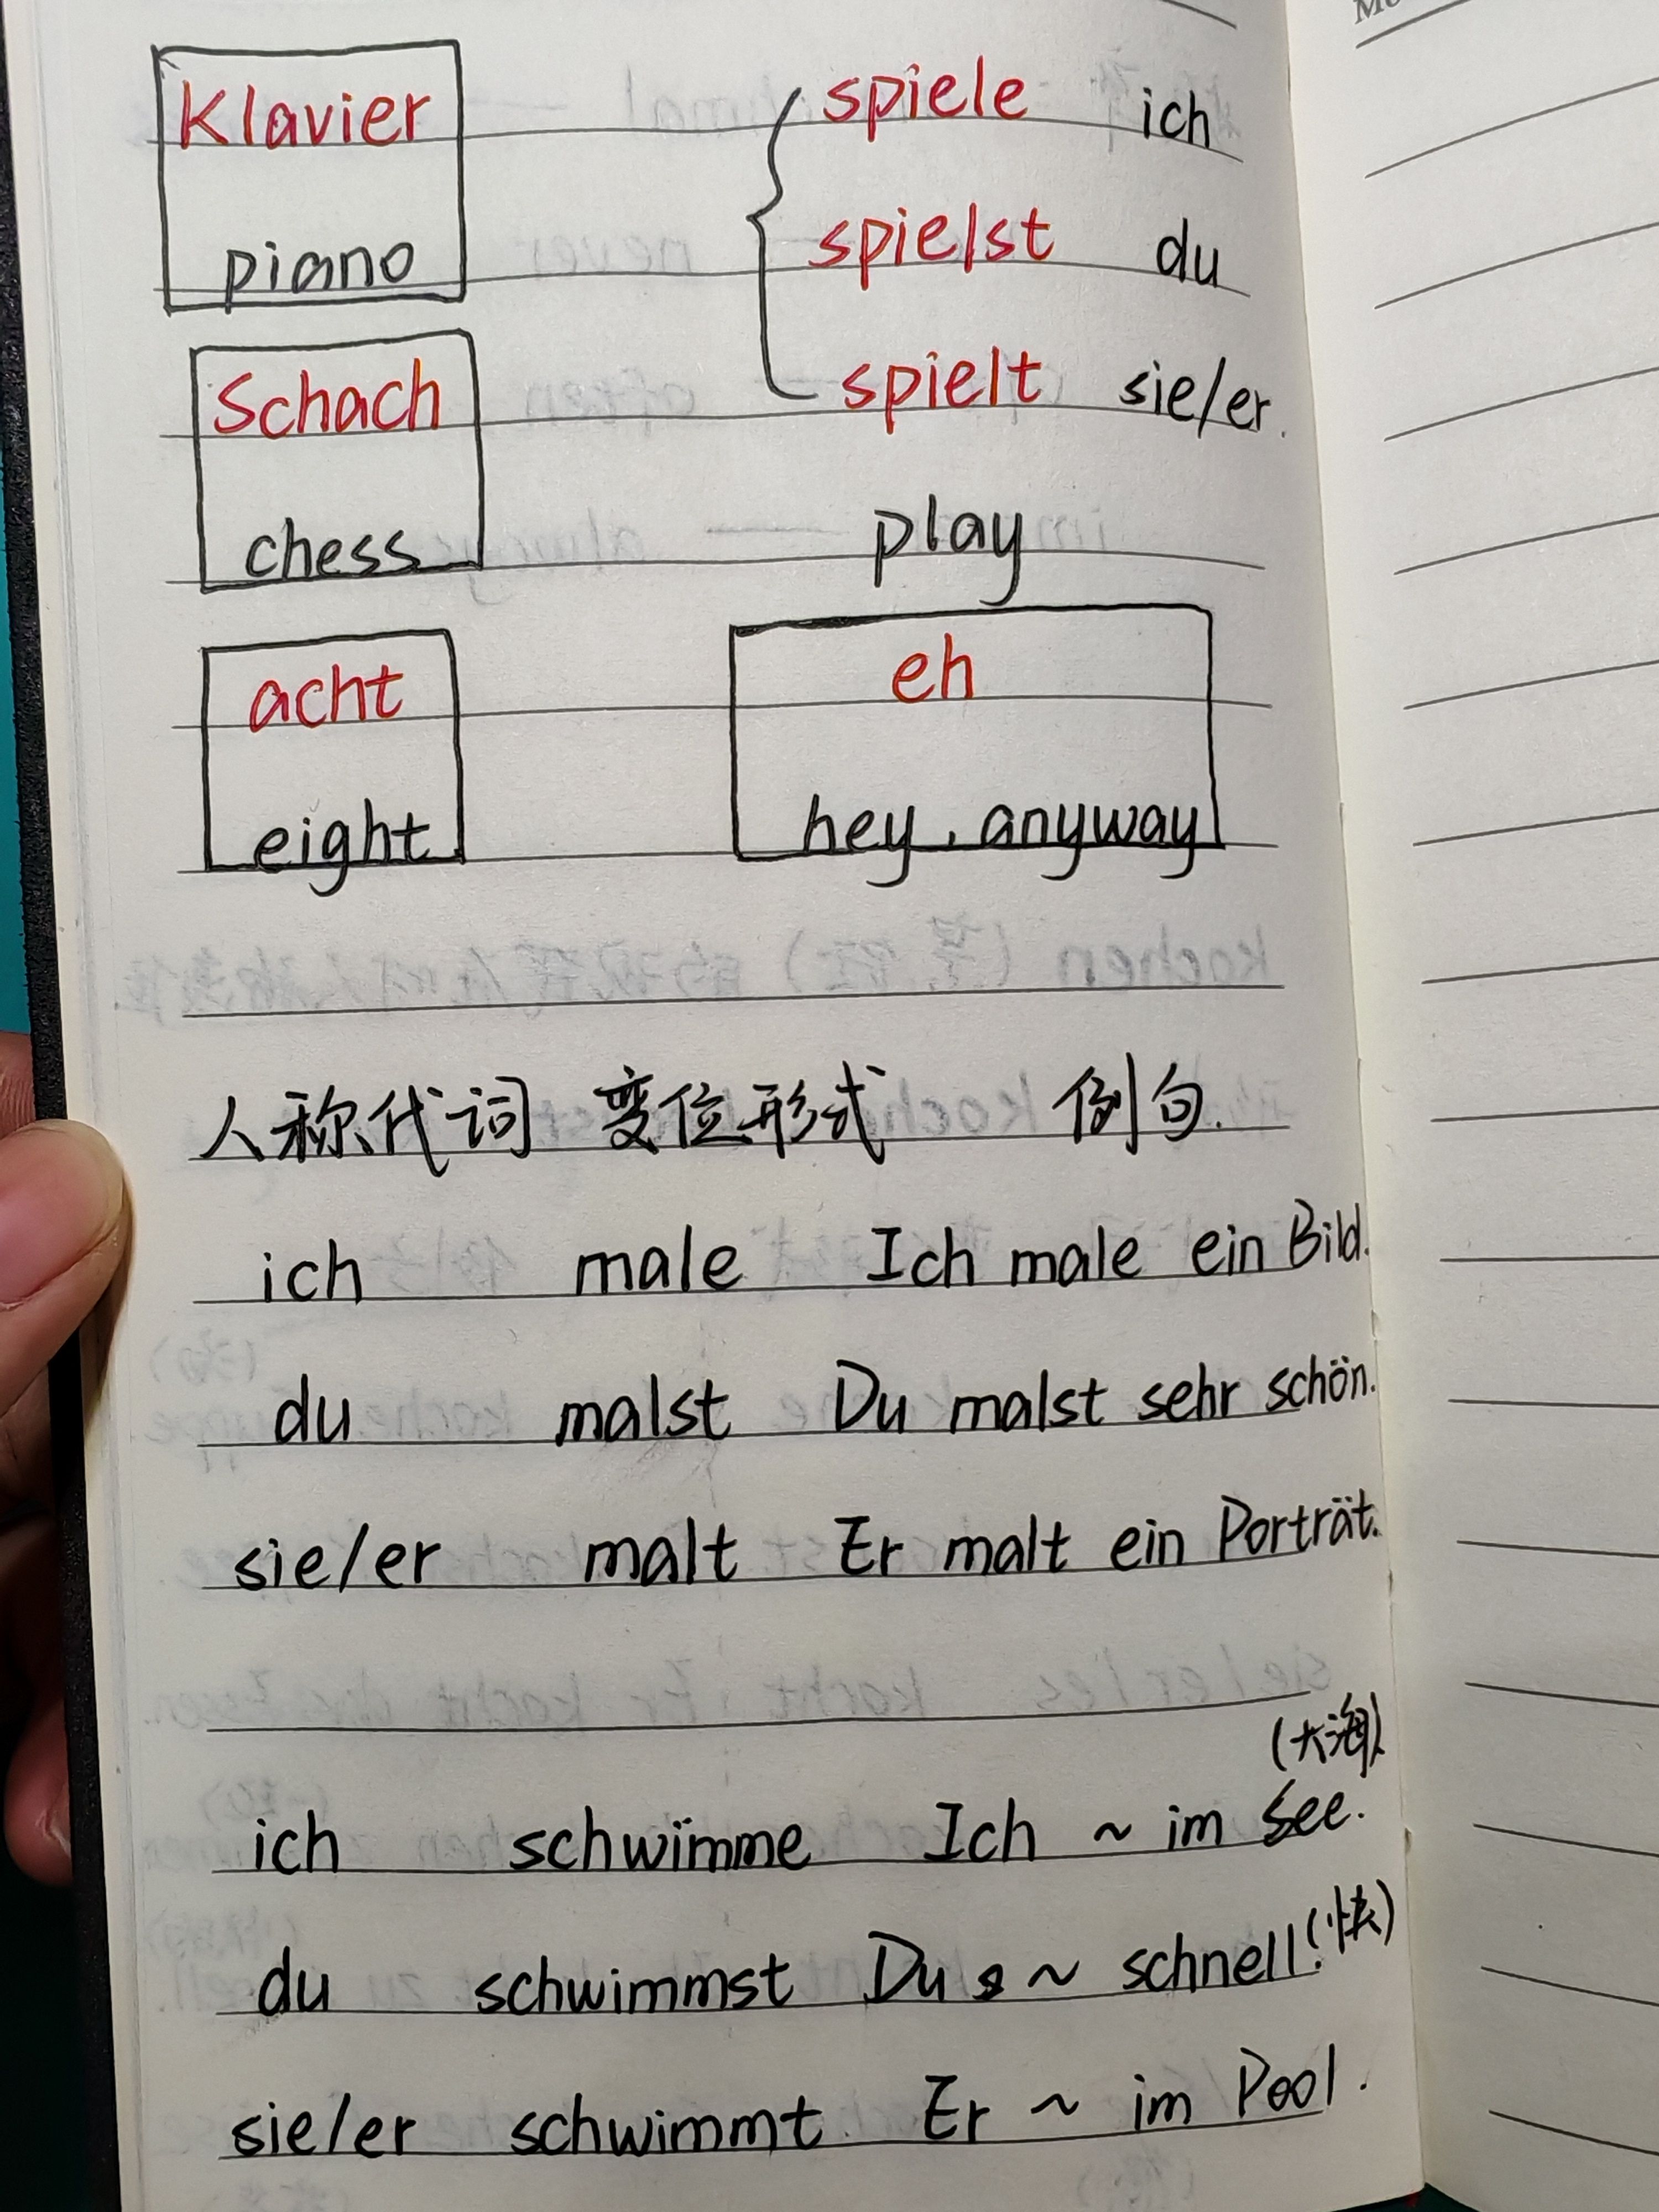 Klavier spiele ich
piano spielst du
Schach spielt sie/er.
chess play
acht eh
eight hey, anyway
人称代词 变位形式 例句.
ich male Ich male ein Bild.
du malst Du malst sehr schön.
sie/er malt Er malt ein Porträt.
(大海)
ich schwimme Ich ~ im See.
du schwimmst Du ~ schnell. (快)
sie/er schwimmt Er ~ im Pool.